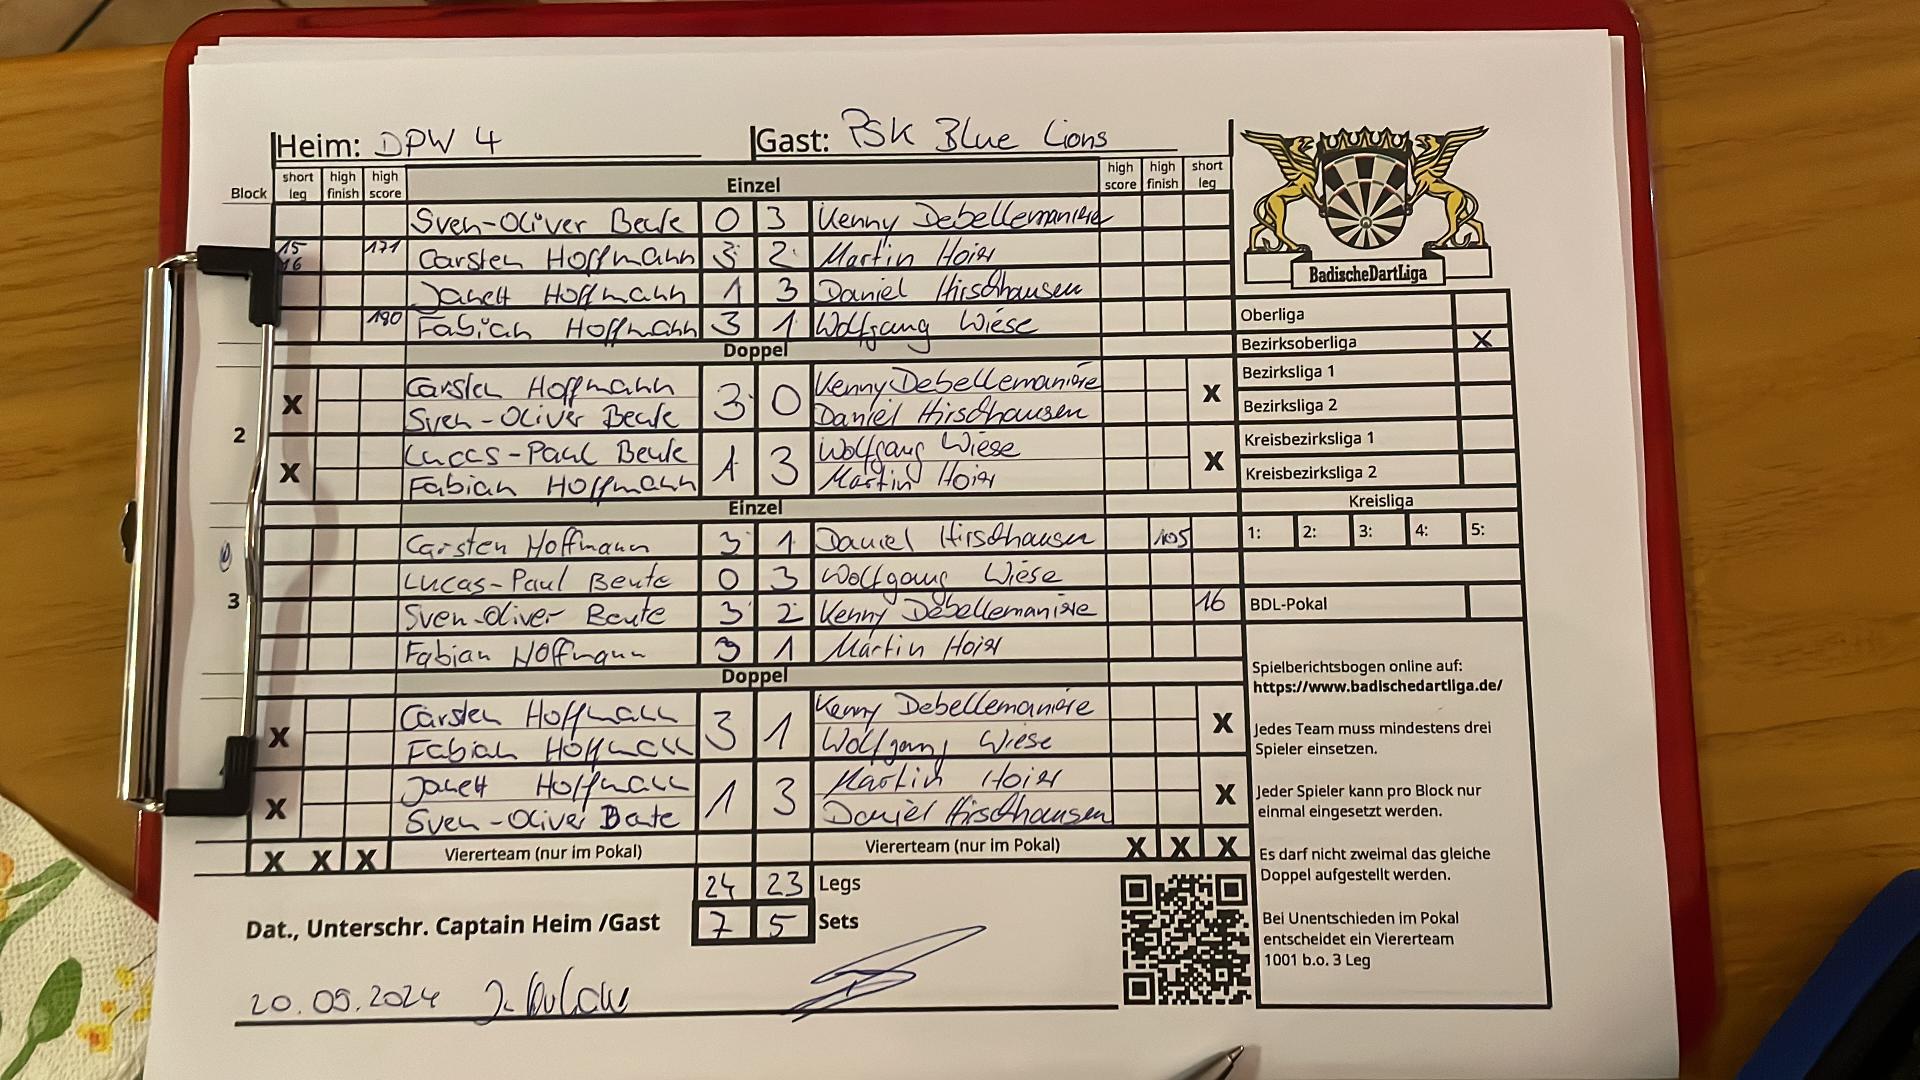 Heim: DPW 4 Gast: PSK Blue Lions
Block short leg high finish high score Einzel high score high finish short leg
Sven-Oliver Beute 0 3 Kenny Debellemanière
15 16 171 Carsten Hoffmann 3 2 Martin Hoier
Janett Hoffmann 1 3 Daniel Hirschhausen
180 Fabian Hoffmann 3 1 Wolfgang Wiese
Doppel
2
X Carsten Hoffmann 3 0 Kenny Debellemanière X
Sven-Oliver Beute Daniel Hirschhausen
X Lucas-Paul Beute 1 3 Wolfgang Wiese X
Fabian Hoffmann Martin Hoier
Einzel
3
Carsten Hoffmann 3 1 Daniel Hirschhausen 105
Lucas-Paul Beute 0 3 Wolfgang Wiese
Sven-Oliver Beute 3 2 Kenny Debellemanière 16
Fabian Hoffmann 3 1 Martin Hoier
Doppel
X Carsten Hoffmann 3 1 Kenny Debellemanière X
Fabian Hoffmann Wolfgang Wiese
X Janett Hoffmann 1 3 Martin Hoier X
Sven-Oliver Beute Daniel Hirschhausen
X X X Viererteam (nur im Pokal) Viererteam (nur im Pokal) X X X
24 23 Legs
Dat., Unterschr. Captain Heim /Gast 7 5 Sets
20.05.2024
BadischeDartLiga
Oberliga
Bezirksoberliga X
Bezirksliga 1
Bezirksliga 2
Kreisbezirksliga 1
Kreisbezirksliga 2
Kreisliga
1: 2: 3: 4: 5:
BDL-Pokal
Spielberichtsbogen online auf:
https://www.badischedartliga.de/
Jedes Team muss mindestens drei
Spieler einsetzen.
Jeder Spieler kann pro Block nur
einmal eingesetzt werden.
Es darf nicht zweimal das gleiche
Doppel aufgestellt werden.
Bei Unentschieden im Pokal
entscheidet ein Viererteam
1001 b.o. 3 Leg